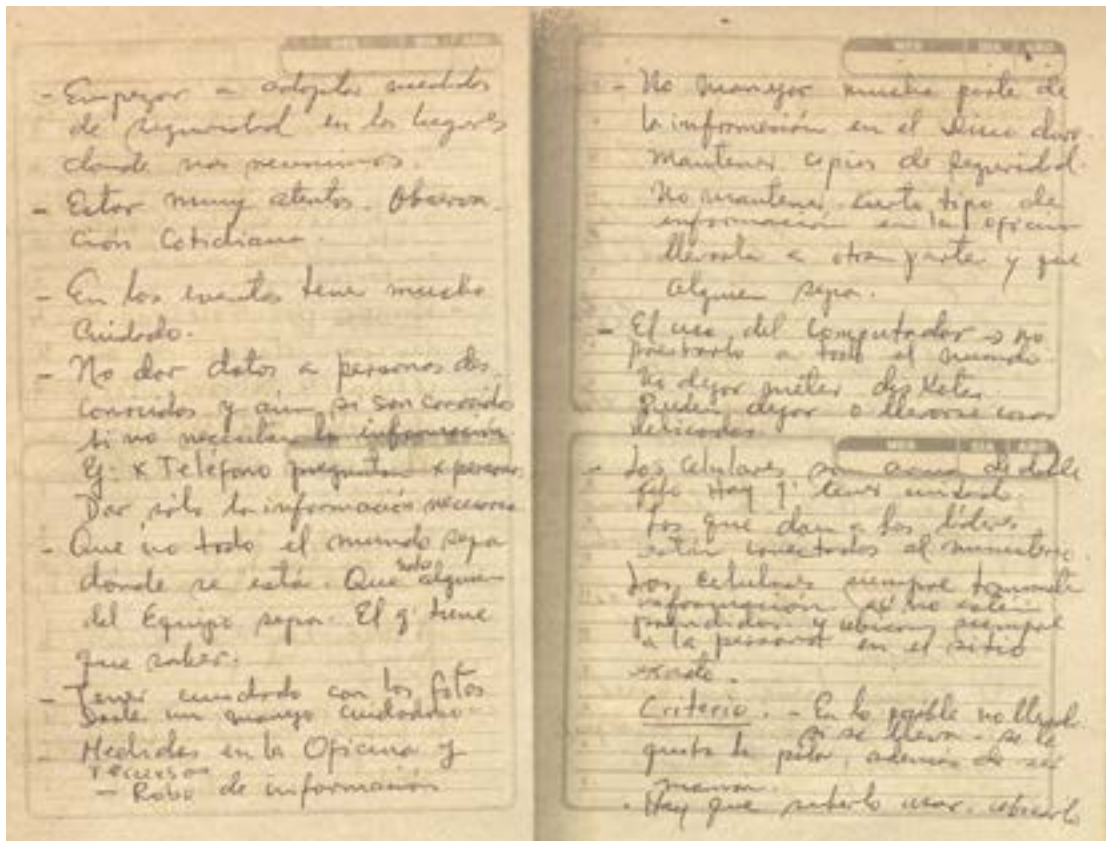 MES DIA AÑO
- Empezar a adoptar medidas
de seguridad en los lugares
donde nos reunimos.
- Estar muy atentos. Observa-
ción Cotidiana.
- En los eventos tener mucho
Cuidado.
- No dar datos a personas des-
conocidas y aún si son conocidos
si no necesitan la información
Ej: x Teléfono preguntan x persona.
Dar sólo la información necesaria
- Que no todo el mundo sepa
donde se está. Que solo alguien
del Equipo sepa. El q' tiene
que saber.
- Tener cuidado con las fotos
Darle un manejo cuidadoso
- Medidas en la Oficina y
recursos
- Robo de información
MES DIA AÑO
- No manejar mucha parte de
la información en el disco duro.
Mantener copias de seguridad.
No mantener cierto tipo de
información en la oficina
llevarla a otra parte y que
alguien sepa.
- El uso del Computador → no
prestarlo a todo el mundo
No dejar meter diskettes.
Pueden dejar o llevarse cosas
delicadas.
MES DIA AÑO
- Los Celulares son arma de doble
filo Hay q' tener cuidado.
Los que dan a los líderes
están conectados al ministerio.
Los celulares siempre transmiten
información así no estén
prendidos y ubican siempre
a la persona en el sitio
exacto.
Criterio. - En lo posible no llevarlo.
si se lleva - se le
quita la pila, además de ser
- Hay que saberlo usar, ubicarlo